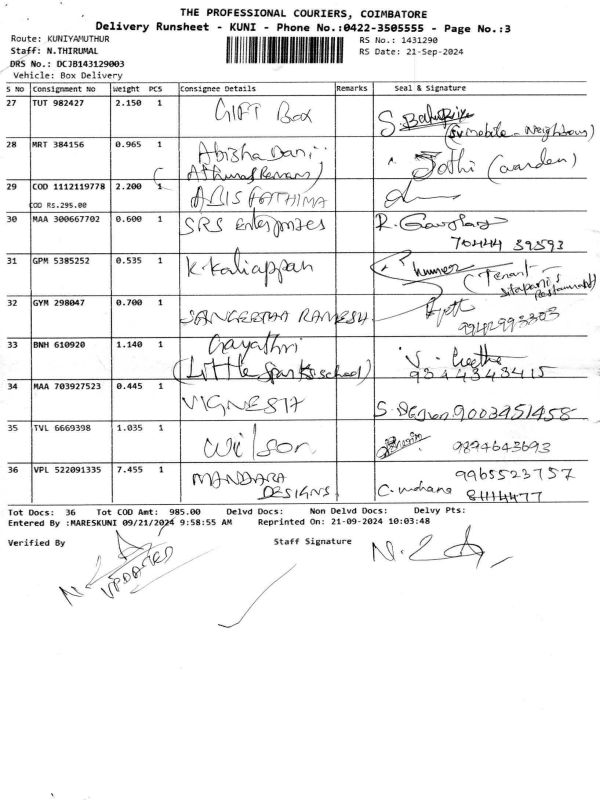 THE PROFESSIONAL COURIERS, COIMBATORE
Delivery Runsheet - KUNI - Phone No.:0422-3505555 - Page No.:3
Route: KUNIYAMUTHUR RS No.: 1431290
Staff: N.THIRUMAL RS Date: 21-Sep-2024
DRS No.: DCJB143129003
Vehicle: Box Delivery
S No Consignment No Weight PCS Consignee Details Remarks Seal & Signature
27 TUT 982427 2.150 1 GIFT Box
28 MRT 384156 0.965 1 Abisha Dani Jothi (warden)
29 COD 1112119778 2.200 1 ABIS FATHIMA
COD Rs.295.00
30 MAA 300667702 0.600 1 SRS Enterprizes
70444 39593
31 GPM 5385252 0.535 1 K. Kaliappan (Tenant
32 GYM 298047 0.700 1 SANGEETHA RAMESH
9942993303
33 BNH 610920 1.140 1 Gayathri V. Geetha
(Little Spark school) 9344343415
34 MAA 703927523 0.445 1 VIGNESH 9003951458
35 TVL 6669398 1.035 1 Wilson 9894643693
36 VPL 522091335 7.455 1 MANDARA 9965523757
DESIGNS C. mohana
Tot Docs: 36 Tot COD Amt: 985.00 Delvd Docs: Non Delvd Docs: Delvy Pts:
Entered By :MARESKUNI 09/21/2024 9:58:55 AM Reprinted On: 21-09-2024 10:03:48
Verified By Staff Signature
UPDATED